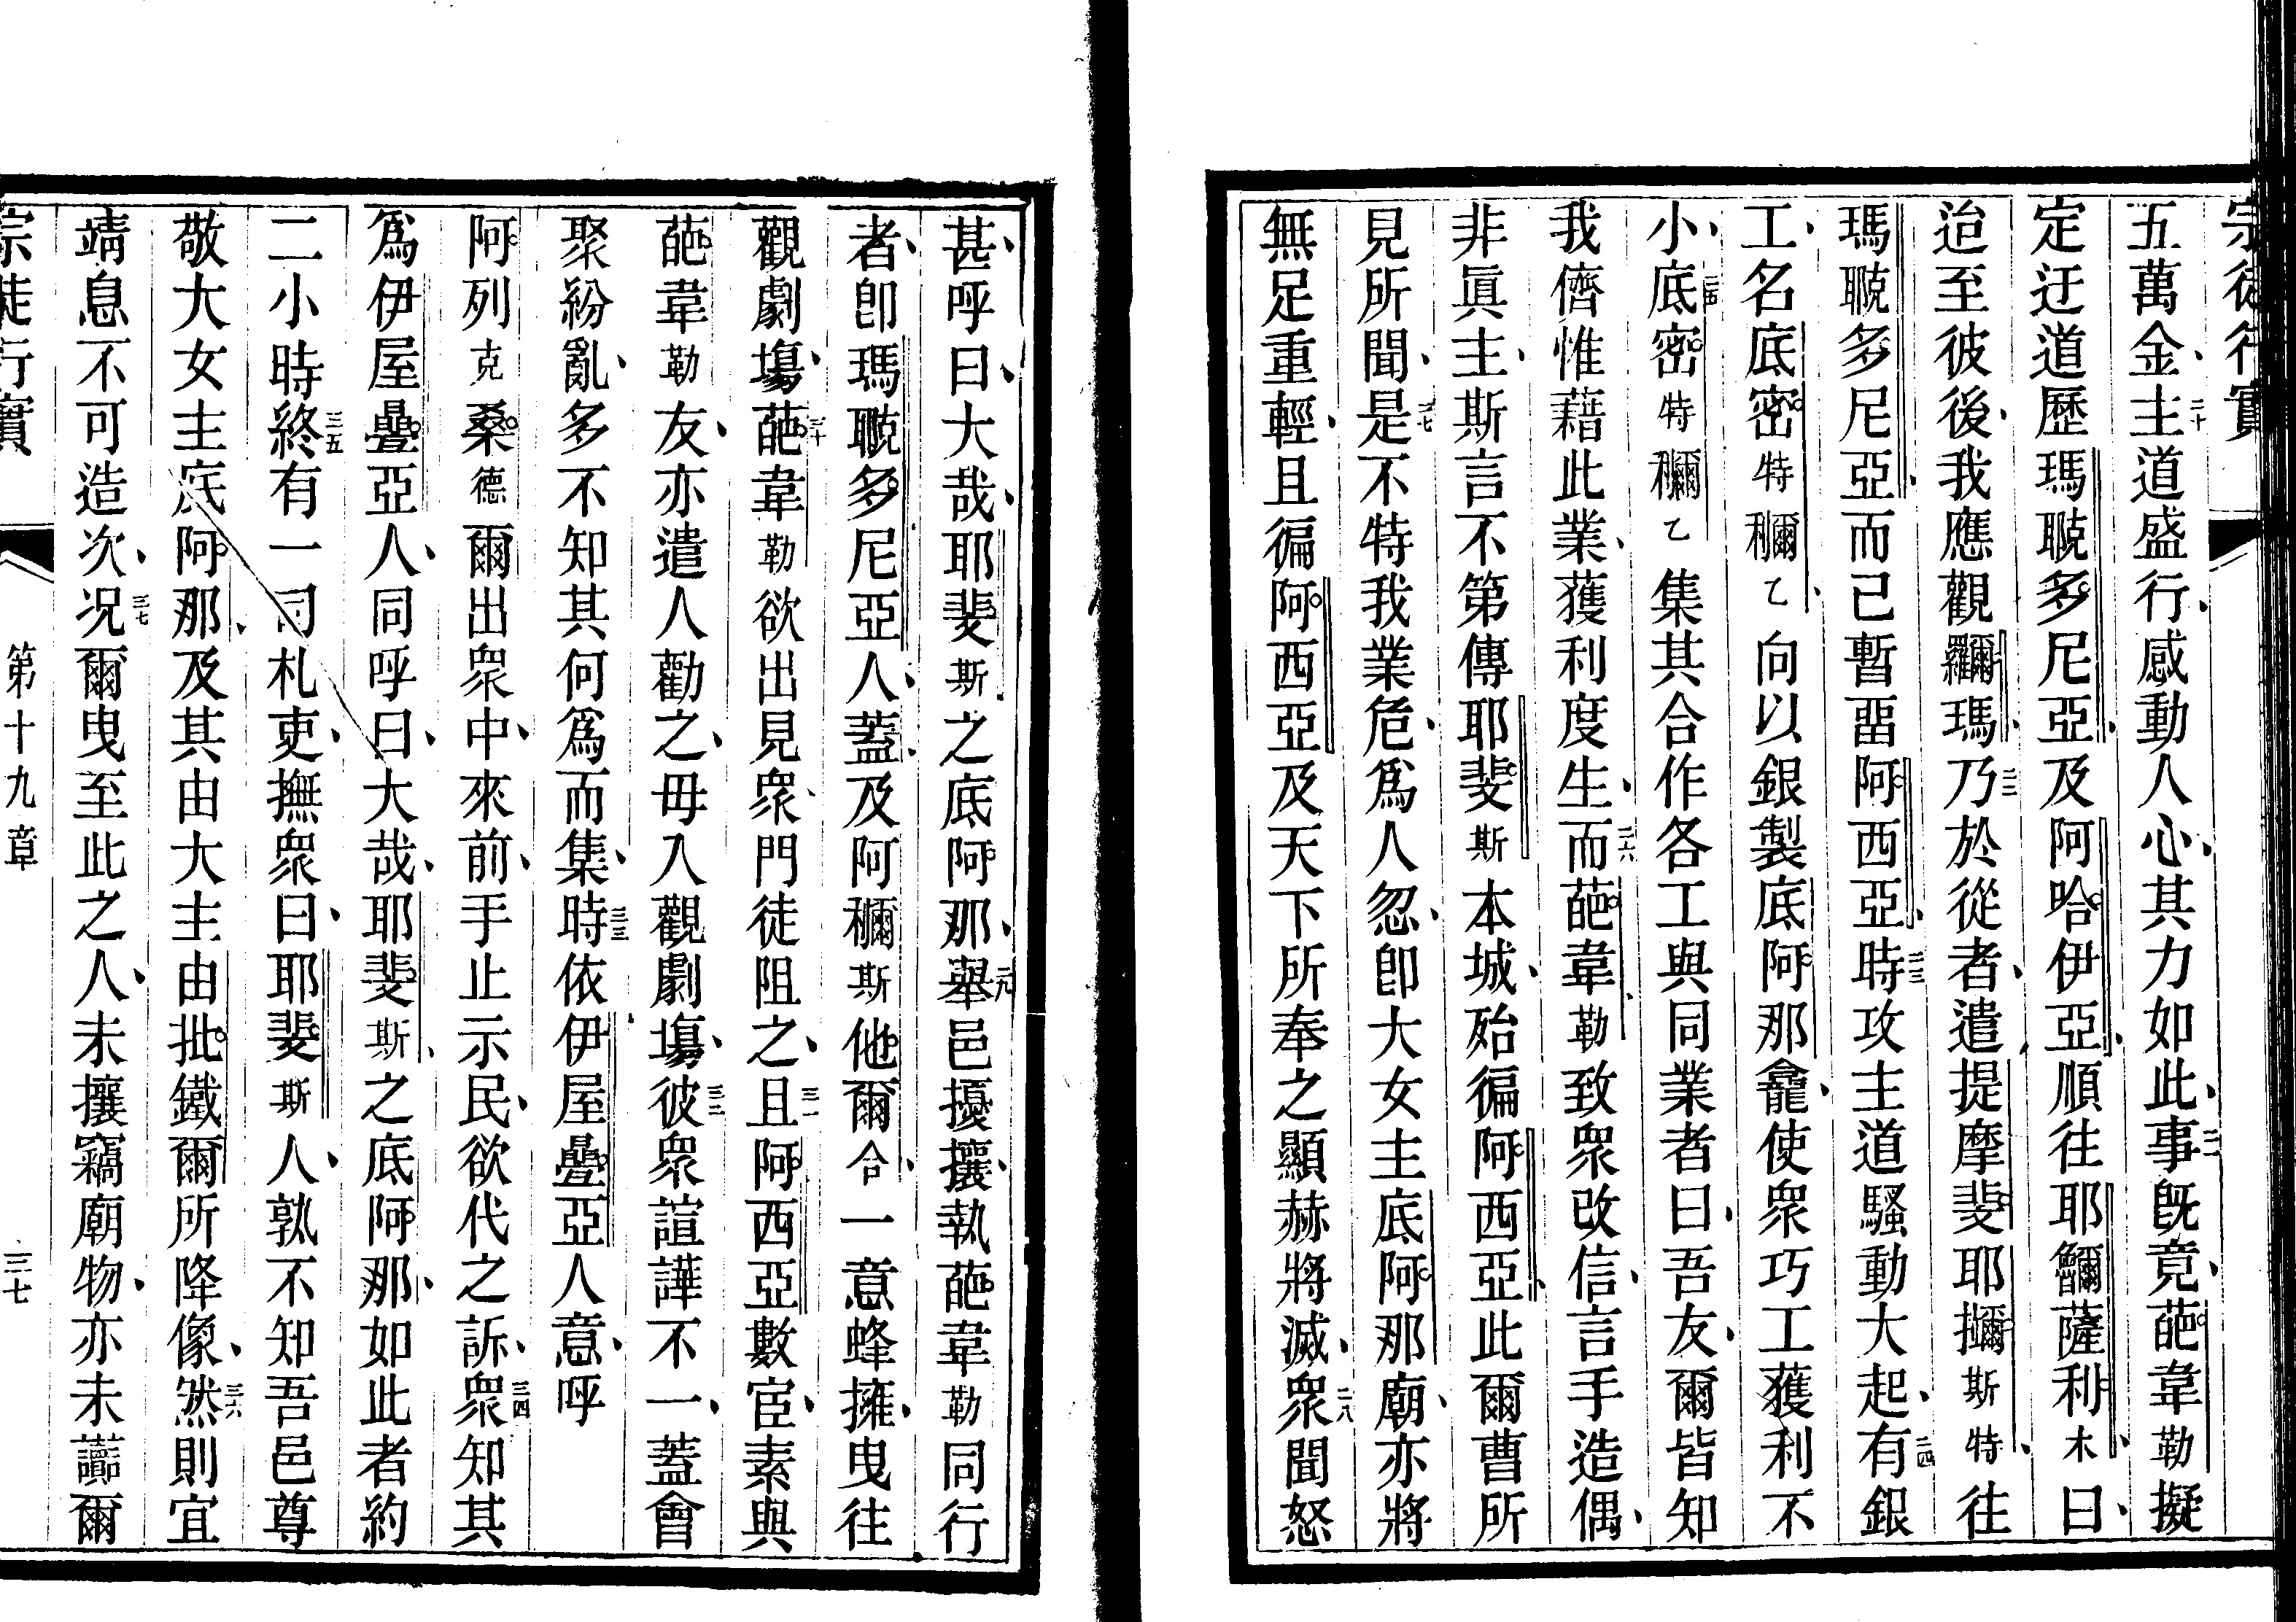 宗徒行實
五萬金、二十主道盛行、感動人心、其力如此、二一事旣竟、葩韋勒擬
定迂道歷瑪䁗多尼亞、及阿哈伊亞、順往耶𩽷薩利木、曰、
迨至彼後、我應觀㒟瑪、二二乃於從者、遣提摩斐耶𢺖斯特、往
瑪䁗多尼亞、而己暫畱阿西亞、二三時攻主道騷動大起、二四有銀
工、名底密特𥣁乙、向以銀製底阿那龕、使衆巧工獲利不
小、二五底密特𥣁乙集其合作各工與同業者曰、吾友、爾皆知
我儕惟藉此業、獲利度生、二六而葩韋勒致衆改信、言手造偶、
非眞主、斯言不第傳耶斐斯本城、殆徧阿西亞、此爾曹所
見所聞、二七是不特我業危、爲人忽、卽大女主底阿那廟、亦將
無足重輕、且徧阿西亞及天下所奉之顯赫將滅、二八衆聞怒
甚、呼曰、大哉、耶斐斯之底阿那、二九舉邑擾攘、執葩韋勒同行
者、卽瑪䁗多尼亞人、蓋及阿𥣁斯他爾合、一意蜂擁、曳往
觀劇場、三十葩韋勒欲出見衆、門徒阻之、三一且阿西亞數宦、素與
葩韋勒友、亦遣人勸之、毋入觀劇場、三二彼衆諠譁不一、蓋會
聚紛亂、多不知其何爲而集、三三時依伊屋疊亞人意、呼
阿列克桑德爾出衆中、來前、手止示民、欲代之訴、三四衆知其
爲伊屋疊亞人、同呼曰、大哉、耶斐斯、之底阿那、如此者約
二小時終、三五有一司札吏、撫衆曰、耶斐斯人、孰不知吾邑尊
敬大女主底阿那、及其由大主由批鐵爾所降像、三六然則宜
靖息不可造次、三七况爾曳至此之人、未攘竊廟物、亦未讟爾
宗徒行實
第十九章
三七